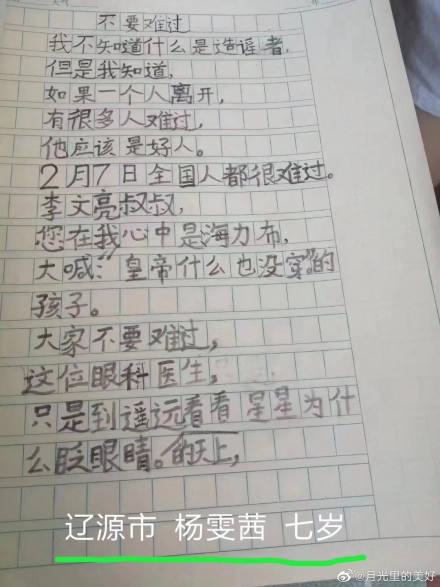 不要难过
我不知道什么是造谣者,
但是我知道,
如果一个人离开,
有很多人难过,
他应该是好人。
2月7日全国人都很难过。
李文亮叔叔,
您在我心中是海力布,
大喊:“皇帝什么也没穿”的
孩子。
大家不要难过,
这位眼科医生,
只是到遥远看看星星为什
么眨眼睛。的天上,
辽源市 杨雯茜 七岁
@月光里的美好